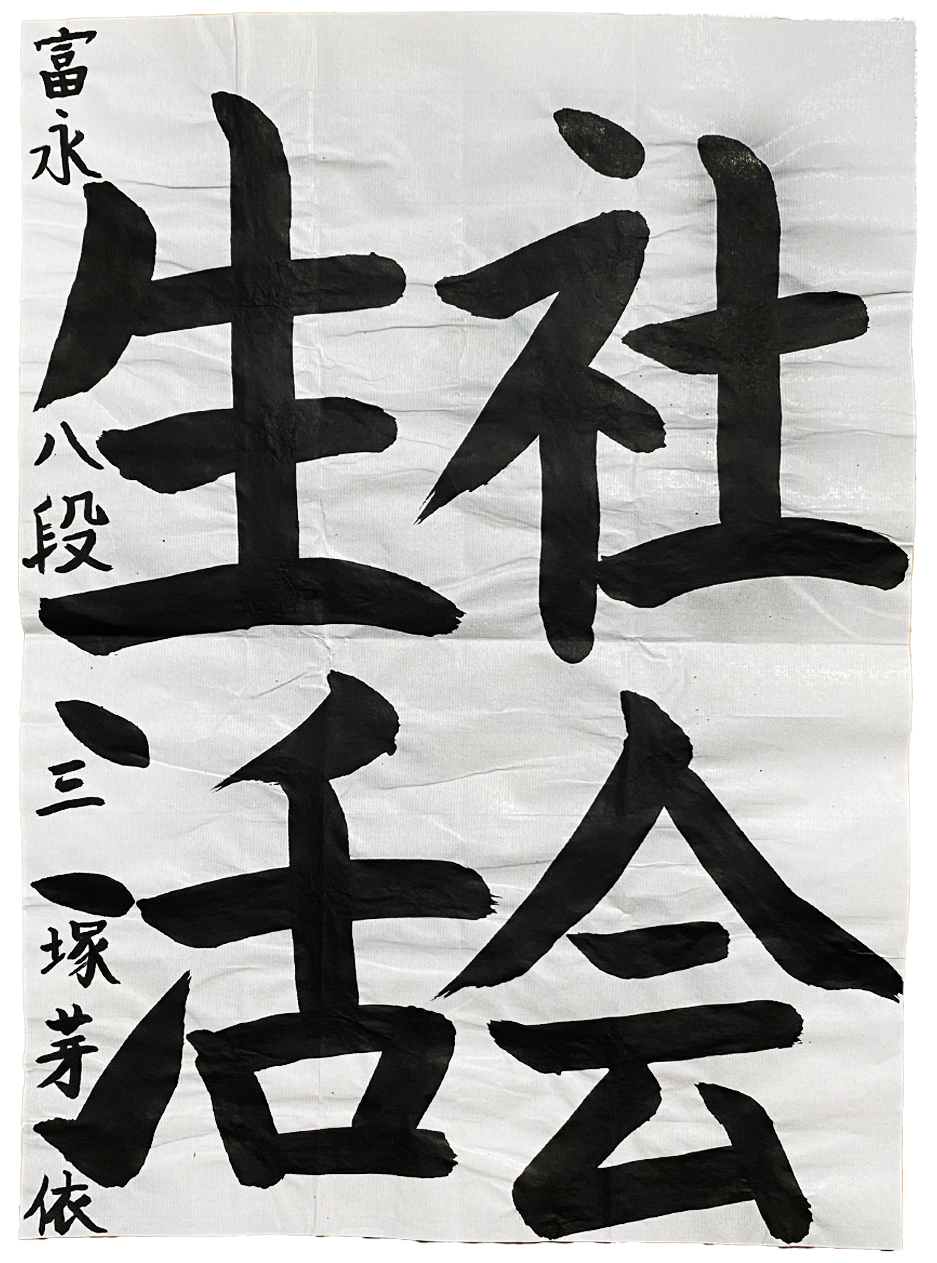 社会
生活
富永 八段 三塚芽依